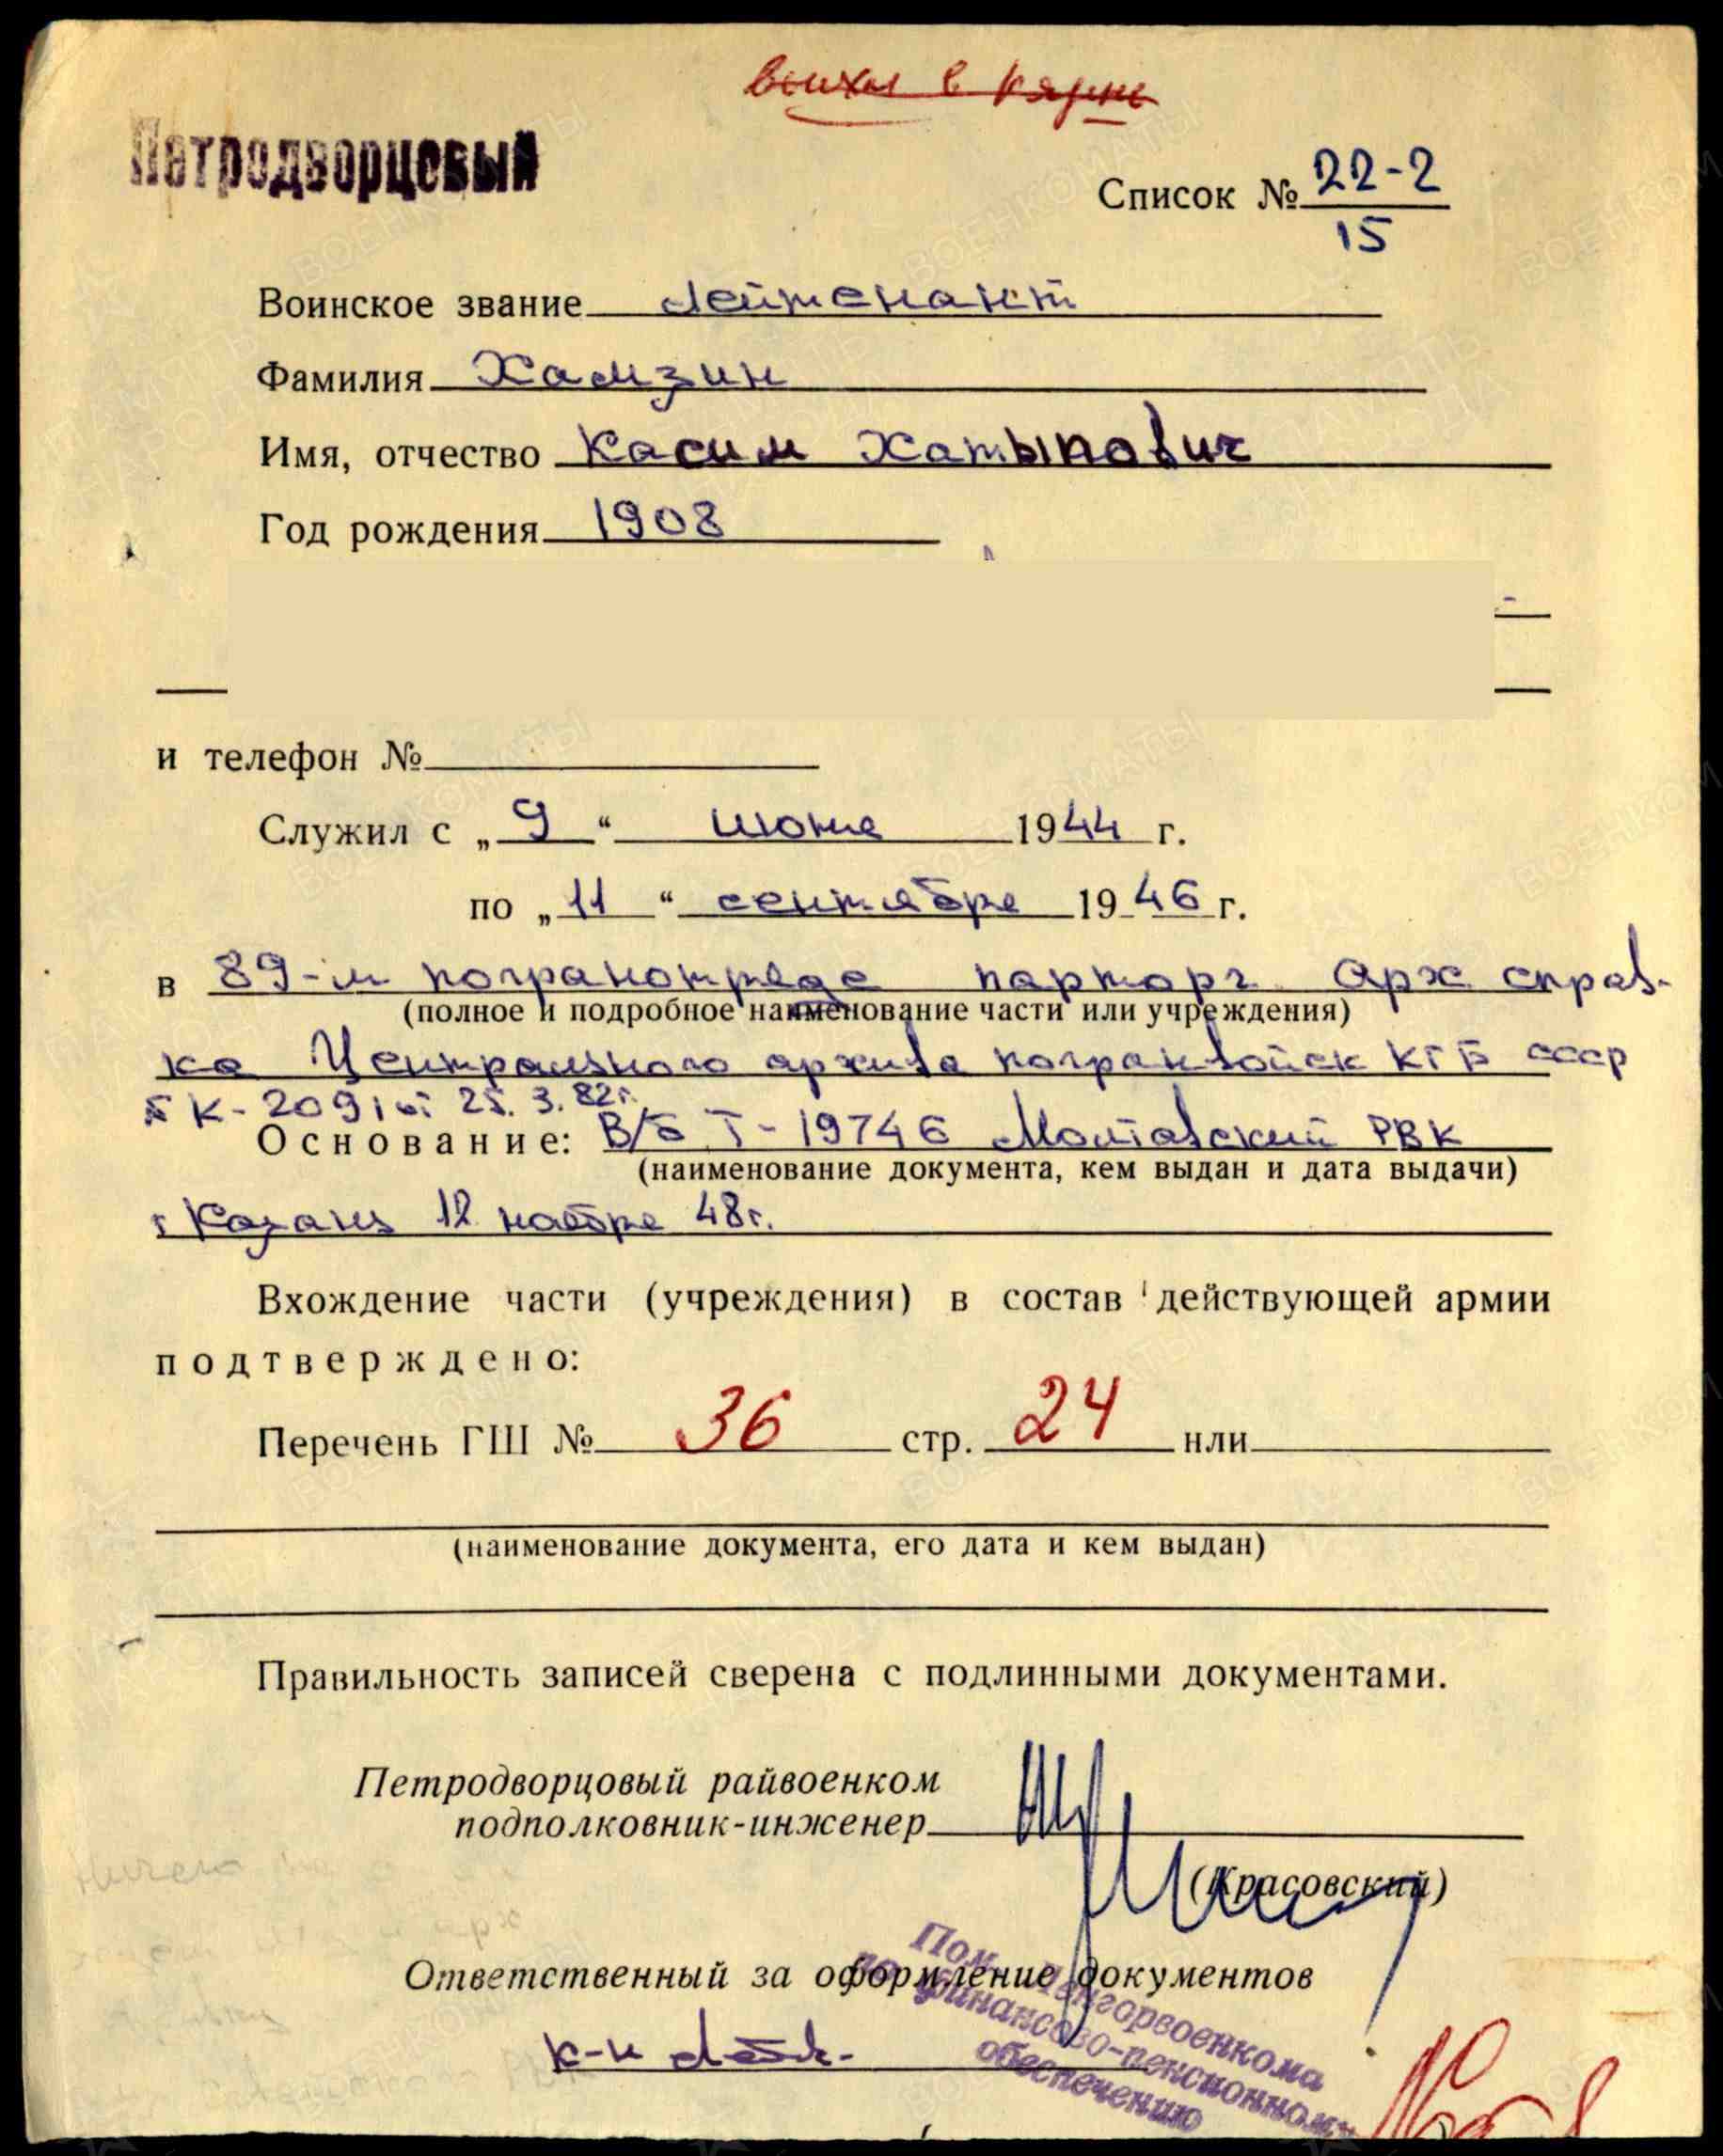 Петродворцовый
Список № 22-2
15
Воинское звание лейтенант
Фамилия Хамзин
Имя, отчество Касим Хатыпович
Год рождения 1908
и телефон №
Служил с „9“ июня 1944 г.
по „11“ сентября 1946 г.
в 89-м погранотряде парторг Арх справ-
(полное и подробное наименование части или учреждения)
ка Центрального архива погранвойск КГБ СССР
К-209 от 25.3.82г.
Основание: В/б Т-19746 Молотовский РВК
(наименование документа, кем выдан и дата выдачи)
г Казань 12 ноября 48г.
Вхождение части (учреждения) в состав действующей армии
подтверждено:
Перечень ГШ № 36 стр. 24 или
(наименование документа, его дата и кем выдан)
Правильность записей сверена с подлинными документами.
Петродворцовый райвоенком
подполковник-инженер
(Красовский)
Ответственный за оформление документов
Пом. Ленгорвоенкома
по финансово-пенсионному
обеспечению